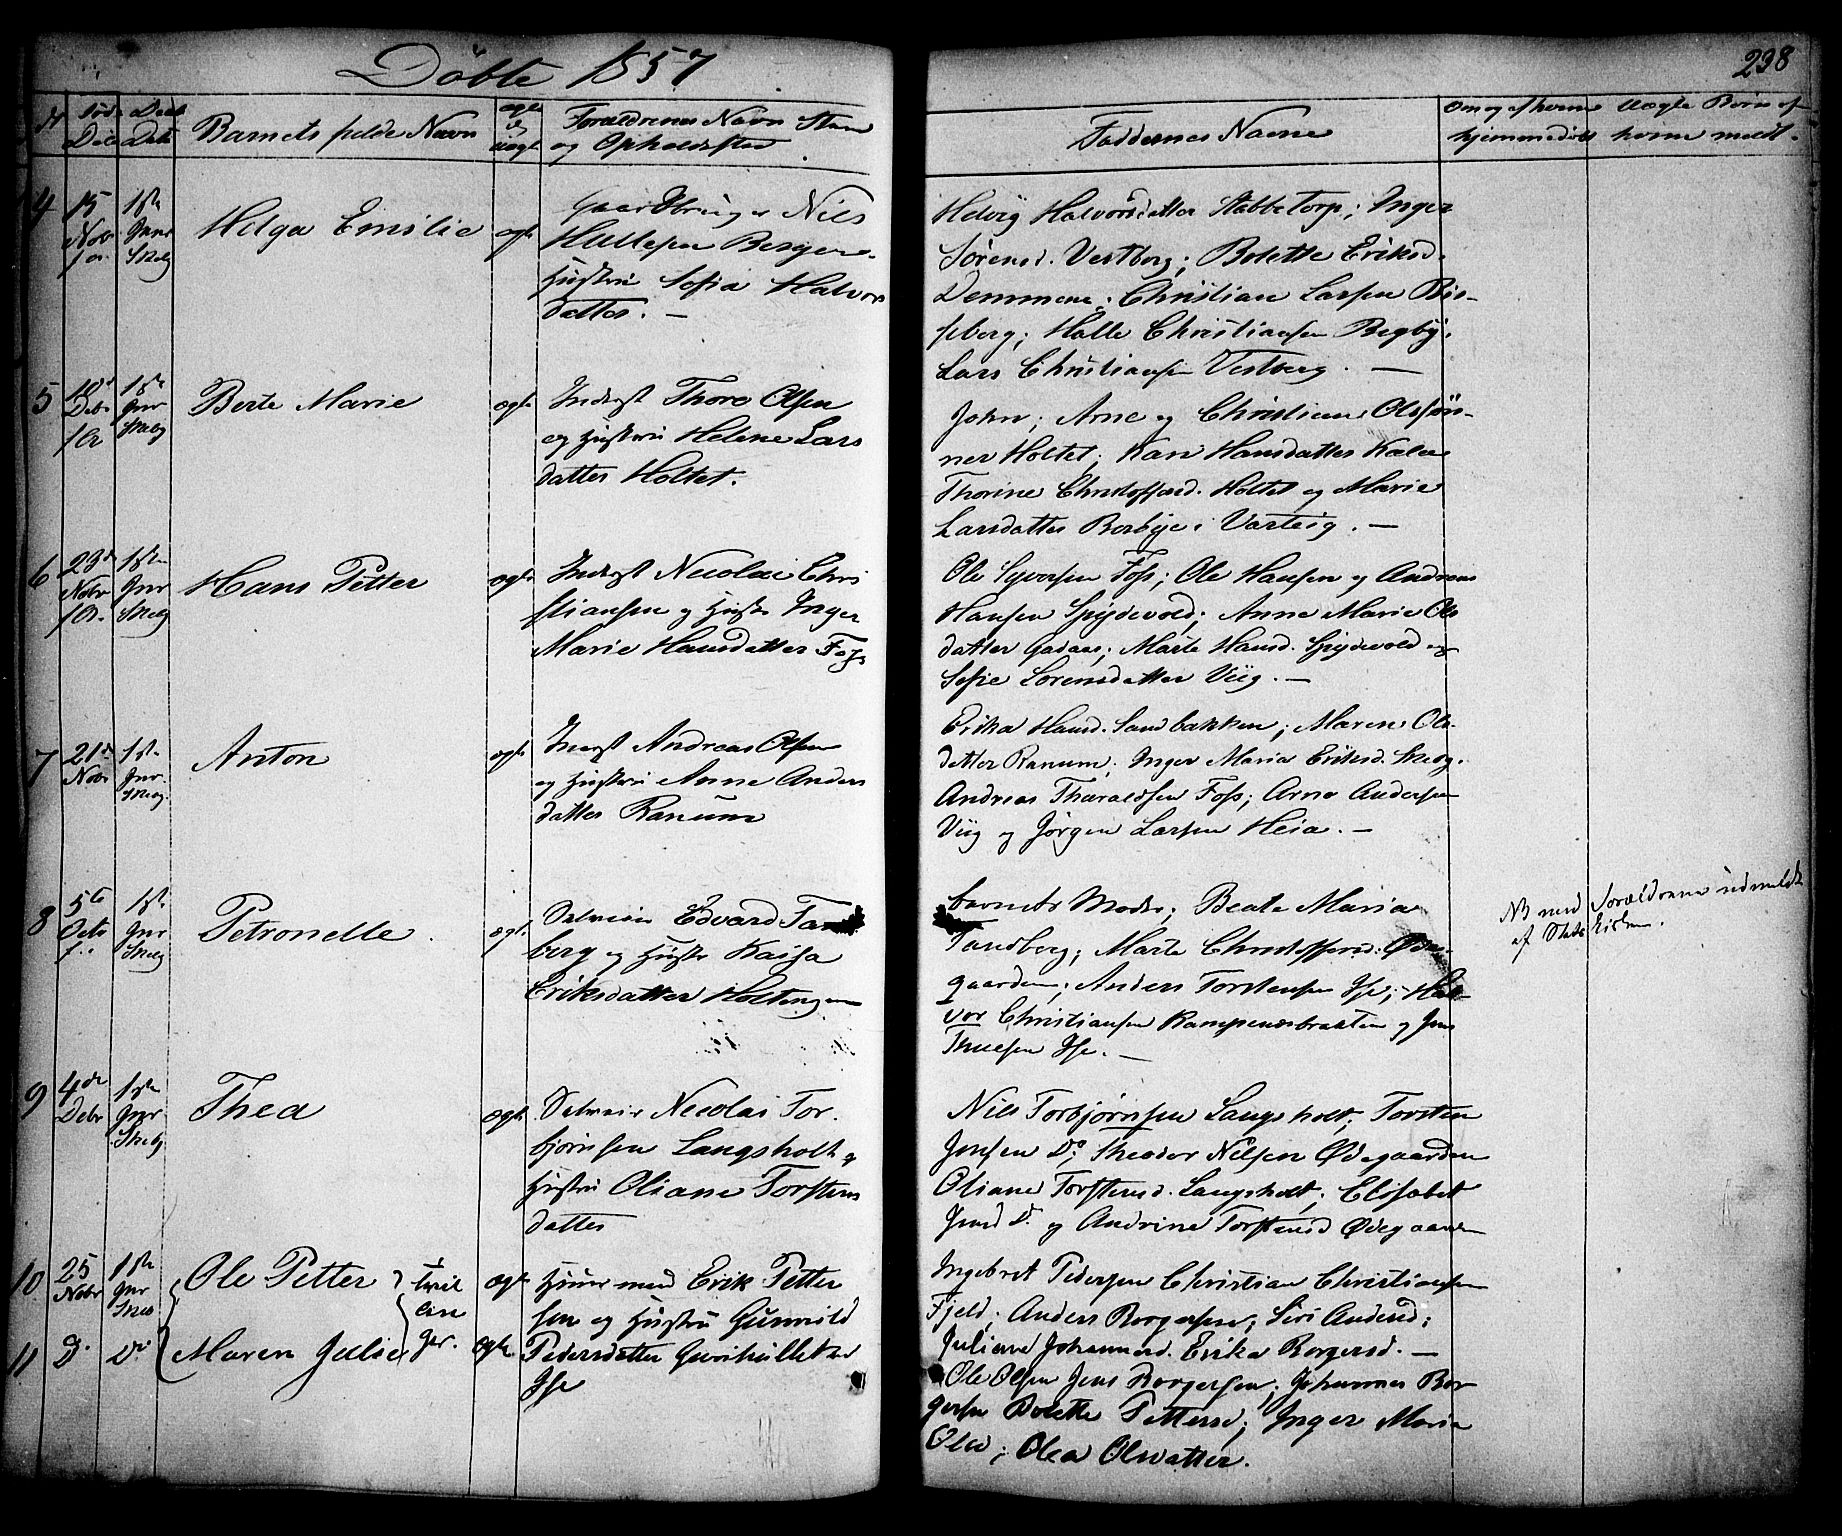 Döbte 1857
238
N
Död
Dato
Barnets fulde Navn
Forældrenes Navn Stan
og Opholdssted
Faddernes Navne
om og af hvem
hjemmedøbt
Uægte Børn af
hvem meldt.
4
15
Nobr
1ste
Janr
Skbg
Helga Emilie
ægte
Gaardbruger Nils
Hallesen Bergene
Hustru Sofia Halvors
datter. —
Helvig Halvorsdatter Stabbetorp; Inger
Sörensd. Vestberg; Bolette Eriksd.
Demmene; Christian Larsen Bis-
berg; Halle Christiansen Begby;
Lars Christiansen Vestberg. —
5
18de
Debr
1ste
Jnr
Skbg
Berte Marie
ægte
Inderst Thore Olsen
og Hustru Helene Lars
datter Holtet.
John; Arne og Christian Olssön-
ner Holtet; Kari Hansdatter
Thorine Christoffersd. Holtet og Marie
Larsdatter Borbye i Varteig. —
6
23de
Nobr
1ste
Jnr
Skbg
Hans Petter
ægte
Inderst Nicolai Chri
stiansen og Hustr Inger
Marie Hansdatter Foss
Ole Syversen Foss; Ole Hansen og Andreas
Hansen Spydevold; Anne Marie Ols
datter Gadaas; Marte Hansd. Spydevold og
Sofie Lorensdatter Viig. —
7
21de
Nobr
1ste
Jnr.
Skbg.
Anton
ægte
Inderst Andreas Olsen
og Hustru Anne Anders
datter Ranum
Erika Hansd. Sandbakken; Maren Ols-
datter Ranum; Inger Maria Eriksd.
Andreas Tharaldsen Foss; Arne Andersen
Viig og Jørgen Larsen Heia. —
8
5te
Octr
1ste
Jnr
Skbg
Petronelle
ægt.
Selveier Edvard Tand
berg og Hustr Kaisa
Eriksdatter Holtengen
barnets Moder; Beate Maria
Tandberg; Marte Christoffersd. Øde-
gaarden; Anders Torstensen Ise; Hal-
vor Christiansen Kampenesbraaten og Jens
Thuesen Ise. —
NB med Forældrene udmeldt
af Stats Kirken.
9
4de
Debr
1ste
Jnr
Skbg
Thea
ægte
Selveier Nicolai Tor-
björnsen Langsholt og
Hustru Oliane Torstens
datter
Nils Torbjörnsen Langsholt; Torsten
Jensen Do; Theodor Nilsen Ødegaarden
Oliane Torstensd. Langsholt; Elisabet
Jensd Do. og Andrine Torstensd Ødegaarden
10
25
Nobr
1ste
Jnr
Skbg
Ole Petter
Tvil
lin
ger.
ægte
Huusmand Erik Petter
sen og Hustru Gunnild
Pedersdatter
Ise
Ingebret Pedersen Christian Christiansen
Fjeld; Anders Borgersen; Siri Andersd;
Juliane Johannesd. Erika Borgersd. —
11
Do.
Do.
Maren Julie
ægte
Ole Olsen Jens Borgersen; Johannes Bor-
gersen Bolette Pettersd; Inger Maria
Olsd; Olea Olsdatter.